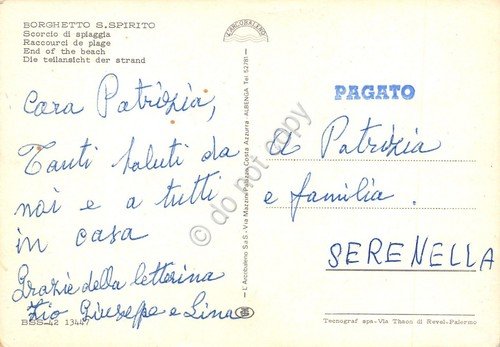 BORGHETTO S.SPIRITO
Scorcio di spiaggia
Raccourci de plage
End of the beach
Die teilansicht der strand
Cara Patrizia,
Tanti saluti da
noi e a tutti
in casa
Grazie della letterina
Zio Giuseppe e Lina
BSS-42 13447
L'ARCOBALENO
L'Arcobaleno S.a.S. - Via Mazzini Palazzo Costa Azzurra - ALBENGA Tel. 52781
PAGATO
A Patrizia
e familia.
SERENELLA
Tecnograf spa-Via Thaon di Revel-Palermo
© do not copy